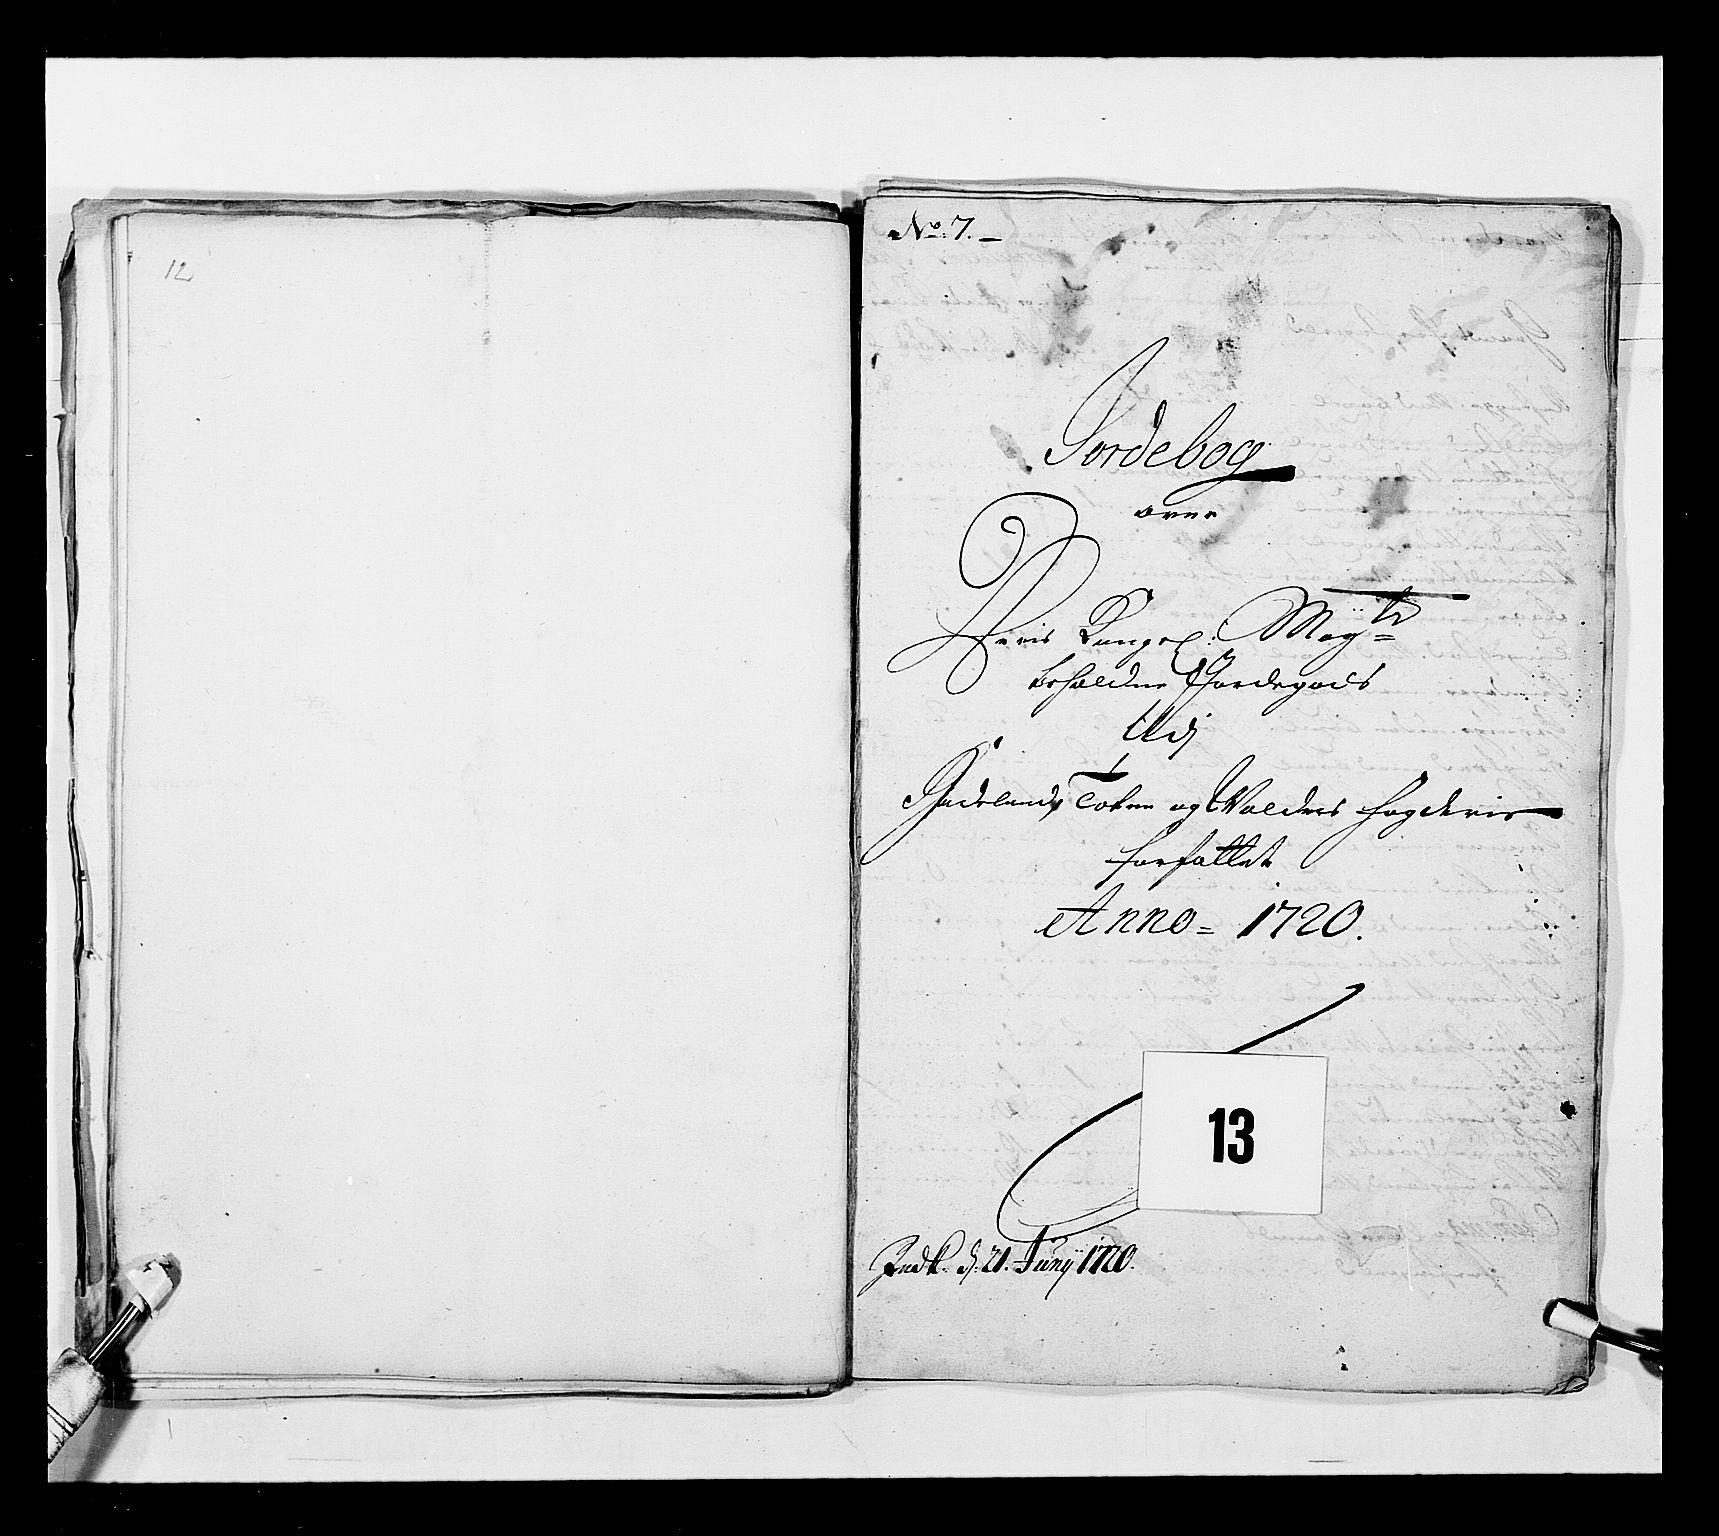 12
No. 7. –
Jordebog
over
Deris Kongel: Mayts
beholdne Jordegods
Udj
Hadelands, Toten og Walders fogderie
forfattet
Anno = 1720.
13
Indk. d. 21. Junij 1720.